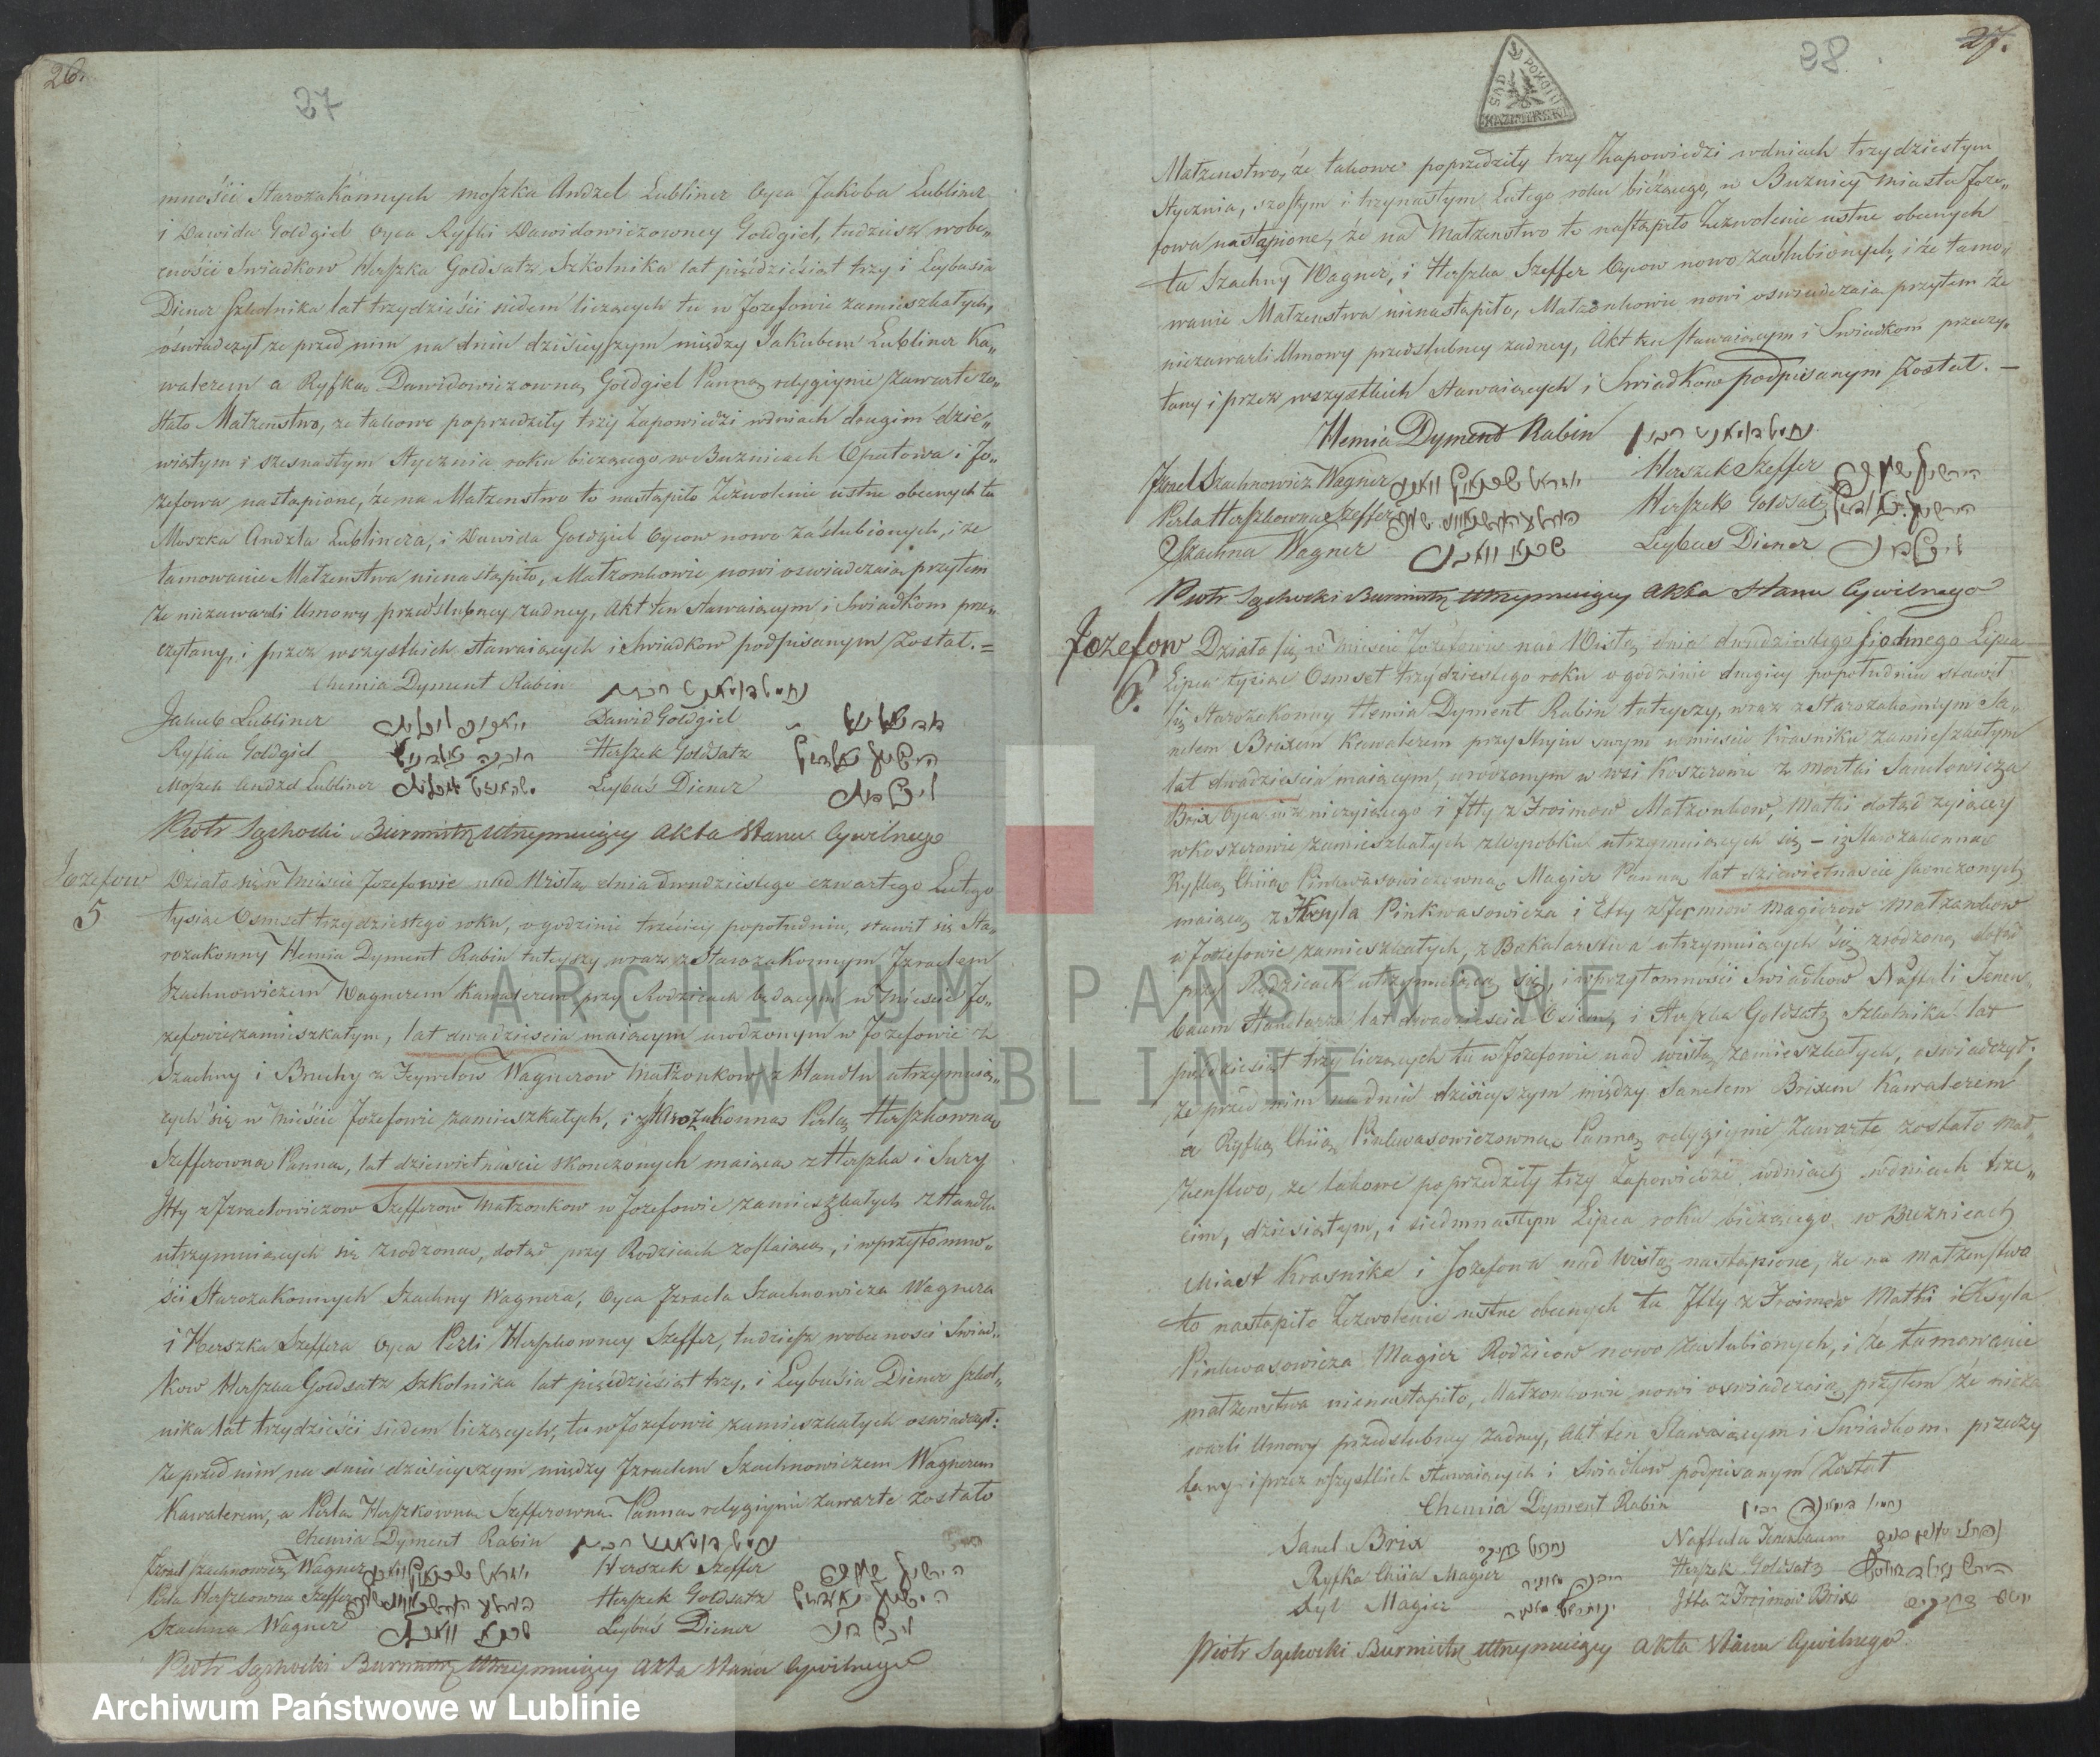 26.
37
mności Starozakonnych Moszka Andzel Lubliner Oyca Jakóba Lubliner
i Dawida Goldgiel Oyca Ryfki Dawidowiczowney Goldgiel, tudziesz wobe„
cności Swiadkow Herszka Goldsatz Szkolnika lat piędziesiąt trzy i Leybusia
Diener Szkolnika lat trzydzieści siedem liczących tu w Jozefowie zamieszkałych,
óswiadczył ze przed nim na dniu dzisieyszym między Jakubem Lubliner Ka„
walerem a Ryfką Dawidowiczowną Goldgiel Panną religiynie zawarte zo„
stało Małzenstwo, ze takowe poprzedziły trzy Zapowiedzi wdniach drugim dzie„
wiątym i szesnastym Stycznia roku bieżącego w Buznicach Opatowa i Jo„
zefowa nastąpione, że na Małzenstwo to nastąpiło Zezwolenie ustne obecnych tu
Moszka Andzla Lublinera, i Dawida Goldgiel Oycow nowo zaślubionych, i że
tamowanie Małzenstwa nienastąpiło, Małzonkowie nowi oswiadczaią przytem
że niezawarli Umowy przedślubney żadney, Akt ten stawaiącym i Swiadkom prze„
czytany, i przez wszystkich stawaiących i Swiadkow podpisanym został.=
Chemia Dyment Rabin
Jakub Lubliner Dawid Goldgiel
Ryfka Goldgiel Herszek Goldsatz
Moszek Andzel Lubliner Leybuś Diener
Piotr Sąchocki Burmistrz Utrzymuiący Akta Stanu Cywilnego
Jozefow Działo się w Miescie Jozefowie nad Wisłą dnia dwudziestego czwartego Lutego
5 tysiąc Osmset trzydziestego roku, o godzinie trzeciey popołudniu, stawił się Sta„
rozakonny Hemia Dyment Rabin tuteyszy wraz z Starozakonnym Izraelem
Szachnowiczem Wagnerem Kawalerem przy Rodzicach będącym w Mieście Jo„
zefowie zamieszkałym, lat dwadziescia maiącym urodzonym w Jozefowie z
Szachny i Bruchy z Feywelow Wagnerow Małżonkow z Handlu utrzymuią„
cych się w Mieście Jozefowie zamieszkałych, i Starozakonną Perlą Herszkowną
Szefferowną Panną, lat dziewietnaście skonczonych maiącą z Herszka i Sury
Itty z Izraelowiczow Szefferow Małżonkow w Jozefowie zamieszkałych z Handlu
utrzymuiących się zrodzoną, dotąd przy Rodzicach zostaiącą, i wprzytomno„
ści Starozakonnych Szachny Wagnera, Oyca Izraela Szachnowicza Wagnera
i Herszka Szeffera Oyca Perli Herszkowney Szeffer, tudziesz wobecnosci Swiad„
kow Herszka Goldsatz Szkolnika lat piędziesiąt trzy, i Leybusia Diener Szkol„
nika lat trzydzieści siedem liczących, tu w Jozefowie zamieszkałych oswiadczył:
że przed nim na dniu dzisieyszym między Izraelem Szachnowiczem Wagnerem
Kawalerem, a Perlą Herszkowną Szefferowną Panną religiynie zawarte zostało
Chemia Dyment Rabin
Izrael Szachnowicz Wagner Herszek Szeffer
Perla Herszkowna Szeffer Herszek Goldsatz
Szachna Wagner Leybuś Diener
Piotr Sąchocki Burmistrz Utrzymuiący Akta Stanu Cywilnego
27.
38
SĄD POKOIU KAZIMIERSKI
Małzenstwo, że takowe poprzedziły trzy Zapowiedzi wdniach trzydziestym
Stycznia, szostym i trzynastym Lutego roku bieżącego, w Buznicy Miasta Joze„
fowa nastąpione, że na Małzenstwo to nastąpiło Zezwolenie ustne obecnych
tu Szachny Wagner, i Herszka Szeffer Oycow nowo zaślubionych, i że tamo„
wanie Małzenstwa nienastąpiło, Małżonkowie nowi oswiadczaią przytem że
niezawarli Umowy przedslubney zadney, Akt ten stawaiącym i Swiadkom przeczy„
tany i przez wszystkich stawaiących i Swiadkow podpisanym został.—
Hemia Dyment Rabin
Izrael Szachnowicz Wagner Herszek Szeffer
Perla Herszkowna Szeffer Herszek Goldsatz
Szachna Wagner Leybus Diener
Piotr Sąchocki Burmistrz Utrzymuiący Akta Stanu Cywilnego
Jozefow Działo się w Miescie Józefowie nad Wisłą dnia dwudziestego siodmego Lipca
6. Lipca tysiąc Osmset trzydziestego roku o godzinie drugiey popołudniu stawił
się Starozakonny Hemia Dyment Rabin tuteyszy, wraz z Starozakonnym Sa„
nelem Brixem Kawalerem przy Stryiu swym w miescie Krasniku zamieszkałym
lat dwadzieścia maiącym, urodzonym w wsi Koszerowie z Mortki Sanelowicza
Brix Oyca iuż nieżyiącego i Itty z Froimow Małzonkow, Matki dotąd żyiącey
w Koszerowie zamieszkałych z Wyrobku utrzymuiących się – i Starozakonną
Ryfką Chiią Pinkwasowiczowną Magier Panną lat dziewietnascie skonczonych
maiącą z Ksyla Pinkwasowicza i Etty z Jermow Magierow Małzonkow
w Jozefowie zamieszkałych, z Bakalarstwa utrzymuiących się zrodzoną dotąd
przy Rodzicach utrzymuiącą się, i wprzytomności Swiadkow Naftuli Tenen„
baum Handlarza lat dwadziescia Osiem, i Herszka Goldsatz Szkolnika lat
piędziesiąt trzy liczących tu w Jozefowie nad Wisłą zamieszkałych, oswiadczył:
że przed nim na dniu dzisieyszym między Sanelem Brixem Kawalerem
a Ryfką Chiią Pinkwasowiczowną Panną religiynie zawarte zostało Mał„
żenstwo, ze takowe poprzedziły trzy Zapowiedzi wdniach wdniach trze„
cim, dziesiątym, i siedmnastym Lipca roku bieżącego w Buznicach
Miast Krasnika i Jozefowa nad Wisłą nastąpione, że na małzenstwo
to nastąpiło Zezwolenie ustne obecnych tu Itty z Froimow Matki i Ksyla
Pinkwasowicza Magier Rodzicow nowo zaslubionych, i że tamowanie
małzenstwa nienastąpiło, Małzonkowie nowi oswiadczaią przytem że nieza
warli Umowy przedslubney żadney, Akt ten Stawaiącym i Swiadkom przeczy
tany i przez wszystkich stawaiących i Swiadkow podpisanym został
Chemia Dyment Rabin
Sanel Brix Naftula Tenenbaum
Ryfka Chiia Magier Herszek Goldsatz
Ksyl Magier Itta z Froimow Brix
Piotr Sąchocki Burmistrz Utrzymuiący Akta Stanu Cywilnego
ARCHIWUM PAŃSTWOWE
W LUBLINIE
Archiwum Państwowe w Lublinie